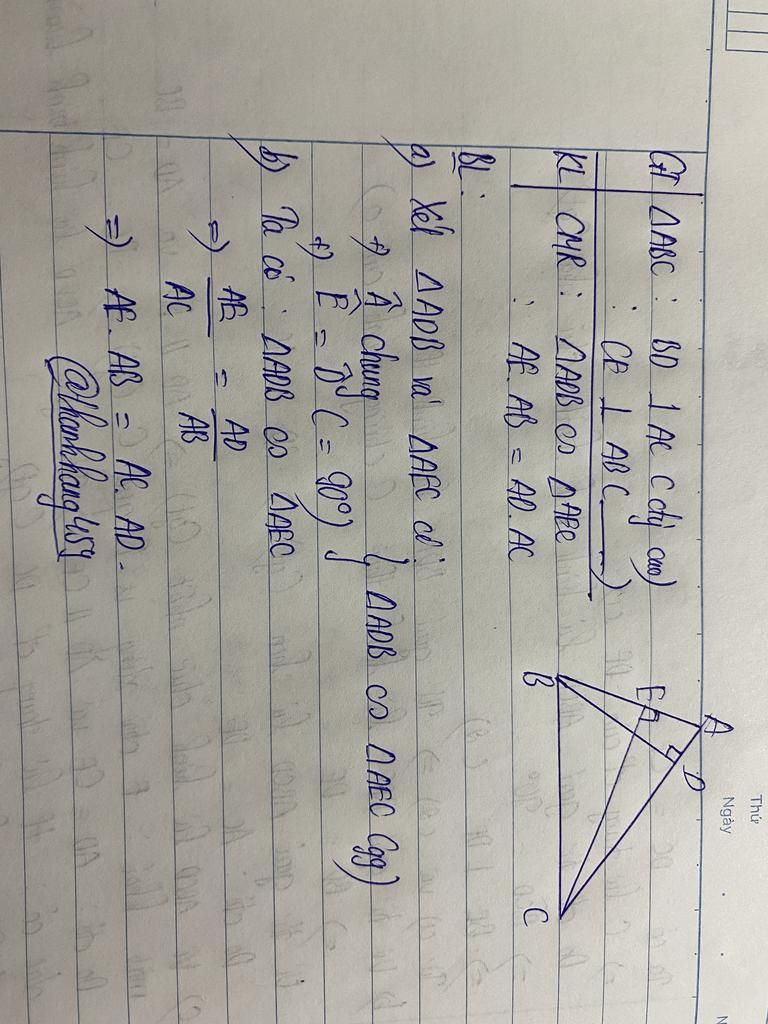 Thứ
Ngày
GT ΔABC : BD ⊥ AC (đg cao)
: CE ⊥ ABC ___)
KL CMR : ΔADB ∽ ΔAEC
: AE. AB = AD. AC
A
D
E
B
C
BL :
a) Xét ΔADB và ΔAEC có:
+) Â chung
+) Ê = D̂ (= 90°) } ΔADB ∽ ΔAEC (gg)
b) Ta có : ΔADB ∽ ΔAEC
=) AE/AC = AD/AB
=) AE. AB = AC. AD.
@thanhhang459